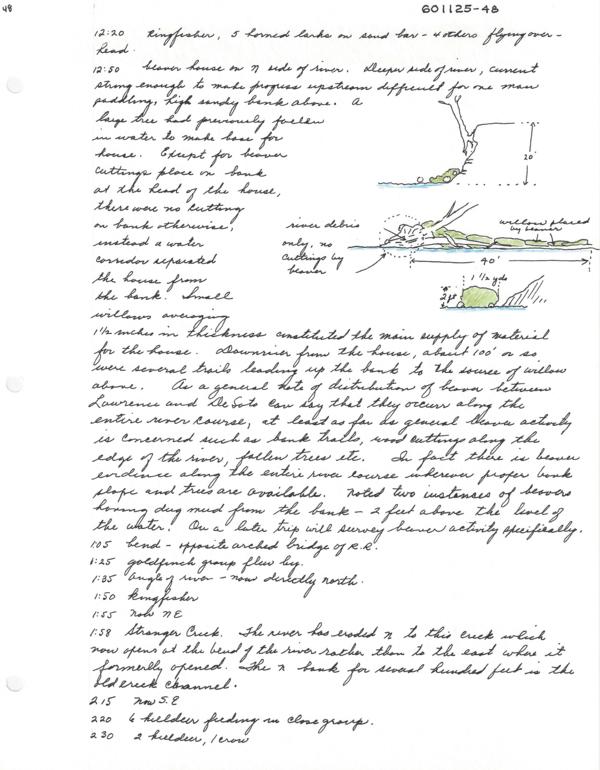 48
601125-48
12:20 Kingfisher, 5 horned larks on sand bar - 4 others flying over-
head.
12:50 beaver house on N side of river. Deeper side of river, current
strong enough to make progress upstream difficult for one man
paddling, high sandy bank above. A
large tree had previously fallen
in water to make base for
house. Except for beaver
cuttings place on bank
at the head of the house,
there were no cutting
on bank otherwise,
instead a water
corridor separated
the house from
the bank. Small
willows averaging
20'
river debris
only, no
cuttings by
beaver
willow placed
by beaver
40'
1 1/2 yds
2 ft
1 1/2 inches in thickness constituted the main supply of material
for the house. Downriver from the house, about 100' or so,
were several trails leading up the bank to the source of willow
above. As a general note of distribution of beaver between
Lawrence and DeSoto can say that they occurr along the
entire river course, at least as far as general beaver activity
is concerned such as bank trails, wood cuttings along the
edge of the river, fallen trees etc. In fact there is beaver
evidence along the entire river course wherever proper bank
slope and trees are available. Noted two instances of beavers
having dug mud from the bank - 2 feet above the level of
the water. On a later trip will survey beaver activity specifically.
1:05 bend - opposite arched bridge of R.R.
1:25 goldfinch group flew by.
1:35 angle of river - now directly north.
1:50 Kingfisher
1:55 now NE
1:58 Stranger Creek. The river has eroded N to this creek which
now opens at the bend of the river rather than to the east where it
formerlly opened. The N bank for several hundred feet is the
old creek channel.
2:15 now S.E
2:20 6 killdeer feeding in close group.
2:30 2 killdeer, 1 crow